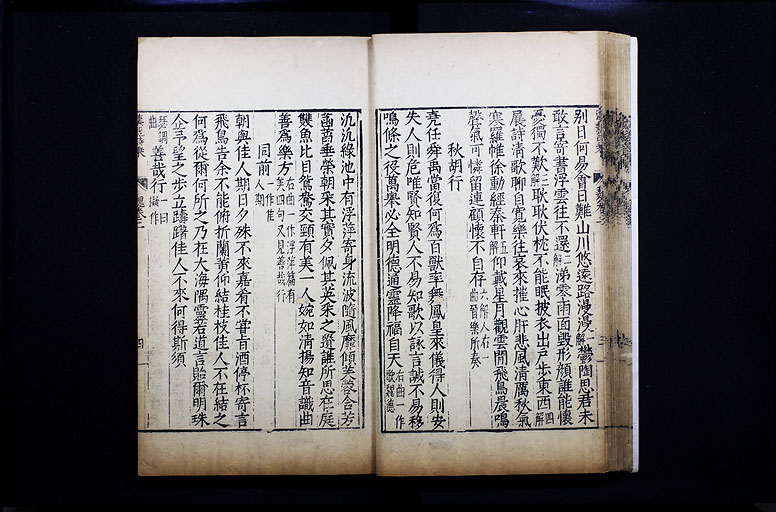 別日何易會日難山川悠遠路漫漫一解鬱陶思君未
敢言寄書浮雲往不還二解涕零雨面毀形顔誰能懷
憂獨不歎三解耿耿伏枕不能眠披衣出戶步東西四解
展詩清歌聊自寛樂往哀來摧心肝悲風清厲秋氣
寒羅帷徐動經秦軒五解仰戴星月觀雲間飛鳥晨鳴
聲氣可憐留連顧懷不自存六解右一曲晉樂所奏
秋胡行
堯任舜禹當復何爲百獸率舞鳳皇來儀得人則安
失人則危唯賢知賢人不易知歌以詠言誠不易移
鳴條之役萬舉必全明德通靈降福自天右曲一作歌魏德
汎汎綠池中有浮萍寄身流波隨風靡傾芙蓉含芳
菡萏垂榮朝采其實夕佩其英采之遺誰所思在庭
雙魚比目鴛鴦交頸有美一人婉如清揚知音識曲
善爲樂方右曲一作浮萍篇有美四句又見善哉行
同前一作佳人期
朝與佳人期日夕殊不來嘉肴不嘗旨酒停杯寄言
飛鳥告余不能俯折蘭英仰結桂枝佳人不在結之
何爲從爾何所之乃在大海隅靈若道言貽爾明珠
企予望之步立躊躇佳人不來何得斯須
瑟調曲善哉行一曰擬作
四